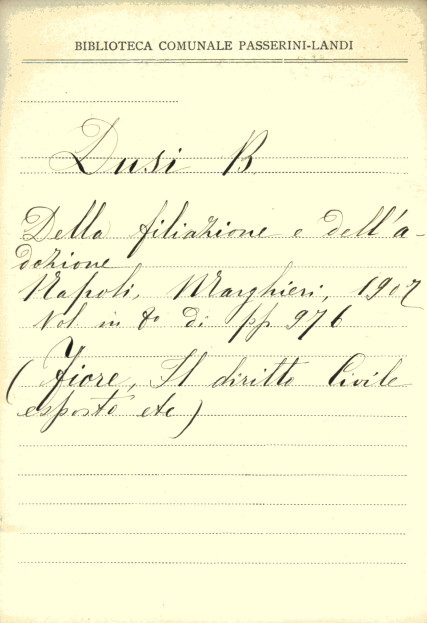 BIBLIOTECA COMUNALE PASSERINI-LANDI
Dusi B
Della filiazione e dell'a-
dozione
Napoli, Marghieri, 1907
Vol in 8° di pp 976
(Fiore, Il diritto Civile
esposto etc)